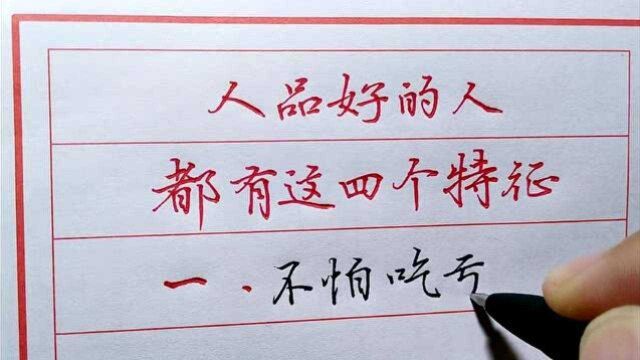 人品好的人
都有这四个特征
一.不怕吃亏